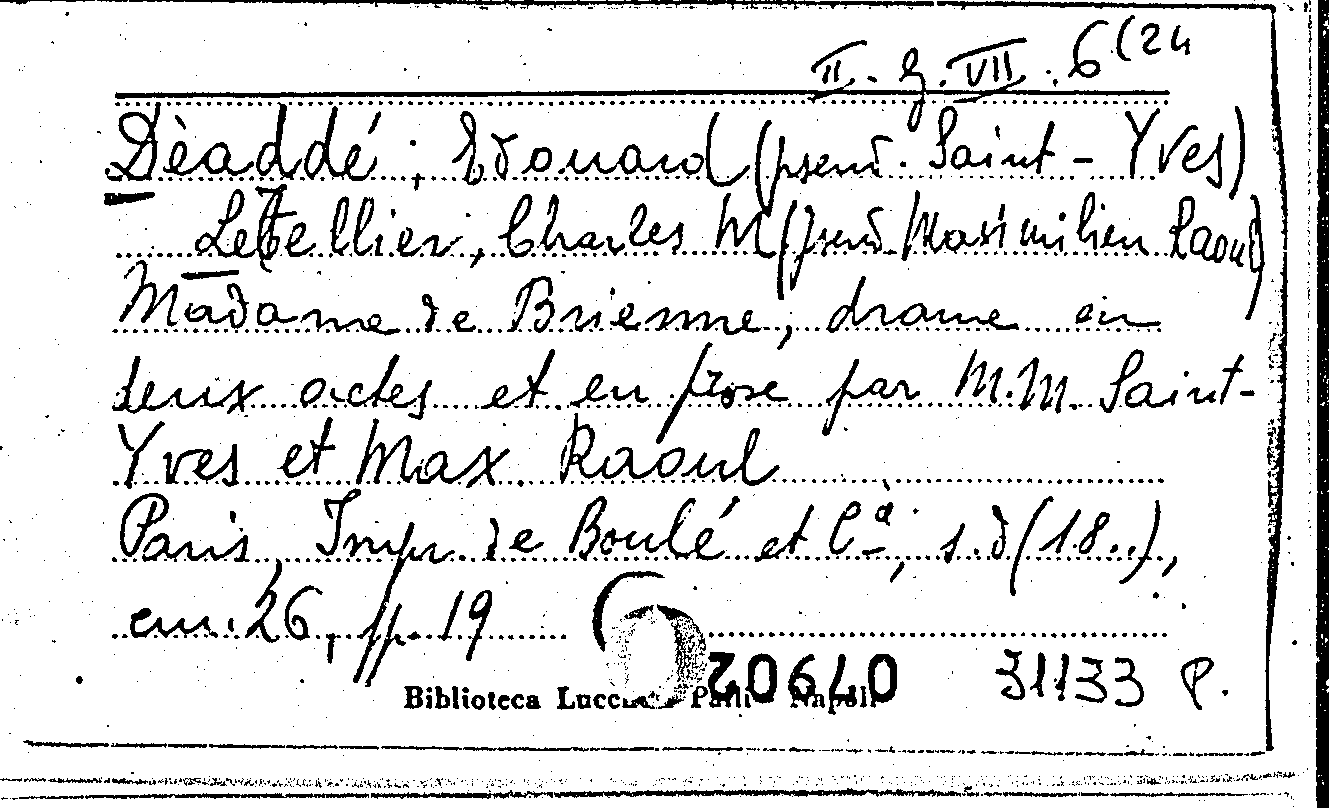 II. G. VII. 6(24
Dèaddé, Edouard (pseud. Saint-Yves)
Letellier, Charles M (pseud Maximilien Raoul)
Madame de Brienne, drame en
deux actes et en prose par M.M. Saint-
Yves et Max Raoul
Paris, Impr. de Boulé et Cª, s.d (18..),
cm. 26, pp. 19
Biblioteca Napoli
079902 31133 P.